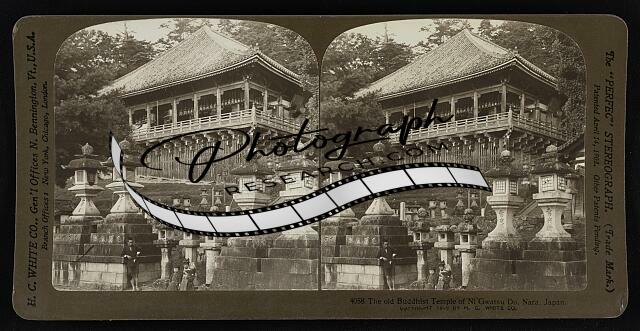 H. C. WHITE CO., Gen'l Offices N. Bennington, Vt., U.S.A.
Branch Offices: New York, Chicago, London.
Photograph
RESEARCH.COM
The "PERFEC" STEREOGRAPH. (Trade Mark.)
Patented April 14, 1903. Other Patents Pending.
4058 The old Buddhist Temple of Ni Gwatsu Do, Nara, Japan.
BY H. C. WHITE CO.